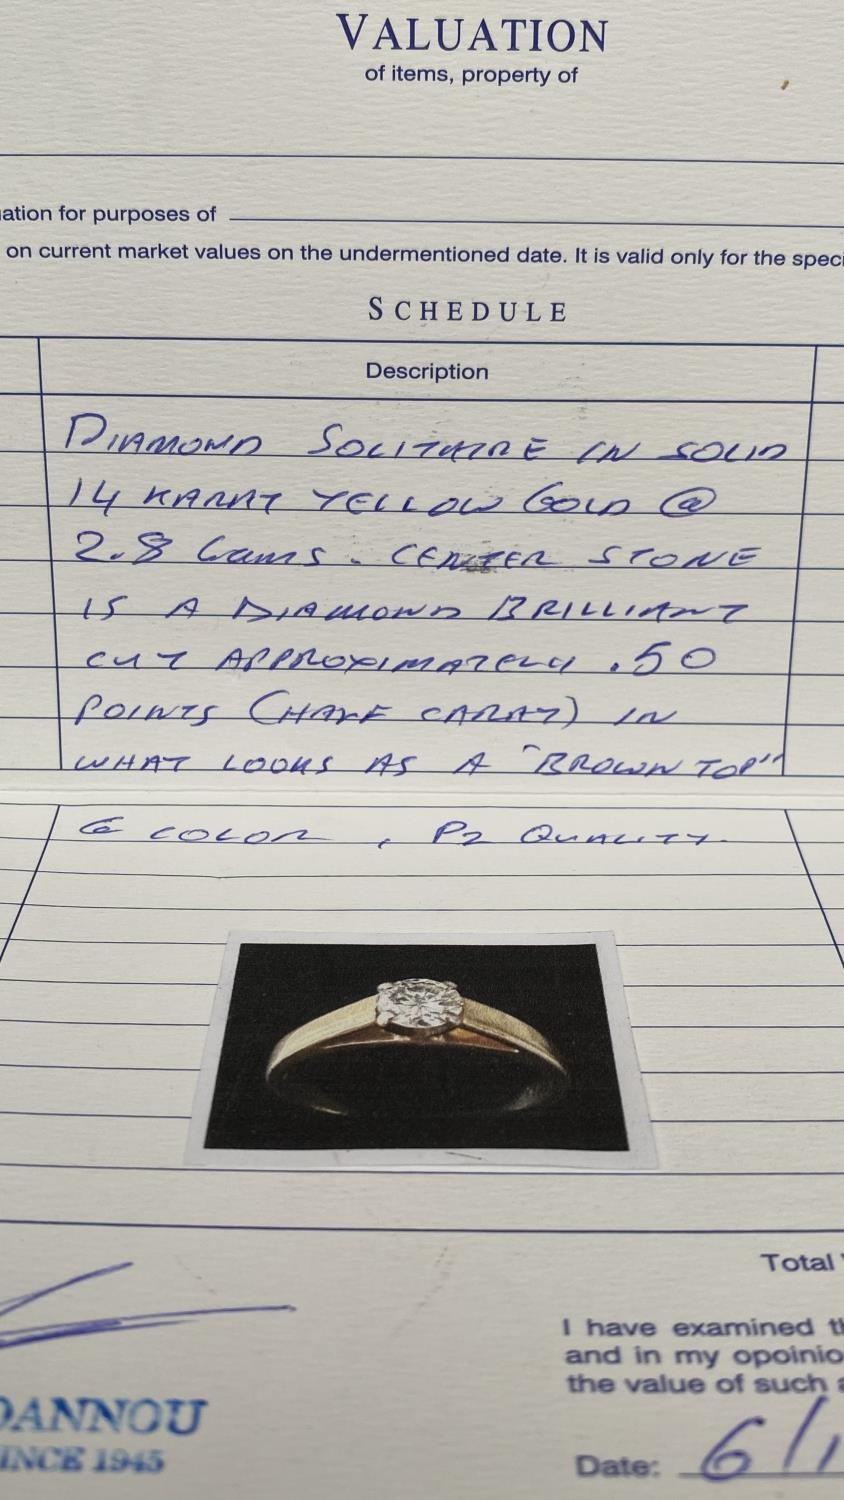 VALUATION
of items, property of
ation for purposes of
on current market values on the undermentioned date. It is valid only for the speci
SCHEDULE
Description
DIAMOND SOLITAIRE IN SOLID
14 KARAT YELLOW GOLD @
2.8 Grams. CENTER STONE
IS A DIAMOND BRILLIANT
CUT APPROXIMATELY .50
POINTS (HALF CARAT) IN
WHAT LOOKS AS A "BROWN TOP"
G COLOR, P2 QUALITY.
Total
I have examined th
and in my opoinio
the value of such a
OANNOU
SINCE 1945
Date: 6/1